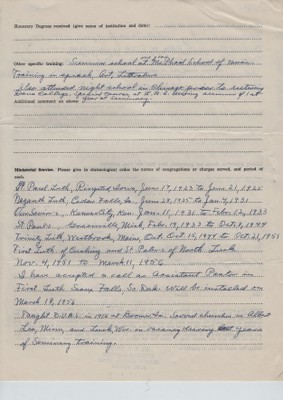 Honorary Degrees received (give name of institution and date):
Other specific training: Summer school at McPhail School of music
Training in speach, Art, Literature
Also attended night school in Chicago
Dana College.
year at Seminary.
Additional comment on above
Ministerial Service. Please give in chronological order the names of congregations or charges served, and period of each.
St. Paul Luth, Ringsted Iowa, June 17, 1923 to June 21, 1925
Nazareth Luth, Cedar Falls, Ia. June 29, 1925 to Jan 4, 1931
Kansas City, Kan. Jan. 11, 1931 to Feb. 12, 1933
St. Pauls, Evansville, Mich. Feb. 19, 1933 to Oct. 8, 1944
Trinity Luth, Westbrook, Maine, Oct. 15, 1944 to Oct. 21, 1951
First Luth of Cushing and St. Peters of North Luck
Nov. 4, 1951 to March 11, 1956
I have accepted a call as Assistant Pastor in
First Luth Sioux Falls, So. Dak. Will be installed on
March 18, 1956
Taught D.V.B.S. in 1916 at Boomer Ia. Served churches in Albert
Lea, Minn, and Luck, Wis. on vacancy during years
of Seminary training.